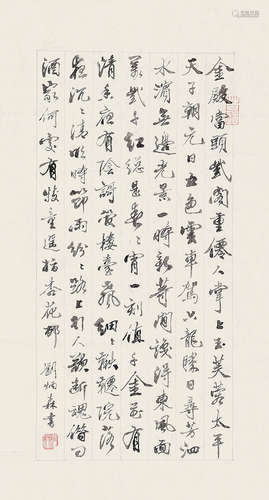 金殿當頭紫閣重僊人掌上玉芙蓉太平
天子朝元日五色雲車駕六龍勝日尋芳泗
水濱無邊光景一時新等閒識得東風面
萬紫千紅總是春〻宵一刻值千金花有
清香月有陰歌管樓臺聲細〻鞦韆院落
夜沉〻清明時節雨紛〻路上行人欲斷魂借問
酒家何處有牧童遙指杏花邨 劉炳森書